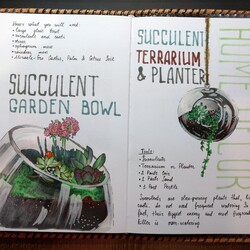 Here's what you will need:
• Large glass bowl
• succulents and cacti
• moss
• sphagnum moss
• reindeer moss
• Miracle-Gro Cactus, Palm & Citrus Soil
SUCCULENT
GARDEN BOWL
SUCCULENT
TERRARIUM
& PLANTER
Tools:
• Succulents
• Terrarium or Planter
• 2 Parts Soil
• 2 Parts Sand
• 1 Part Perlite
Succulents are slow-growing plants that,
do not need frequent watering. In
fact, their biggest enemy and most frequent
killer is over-watering.